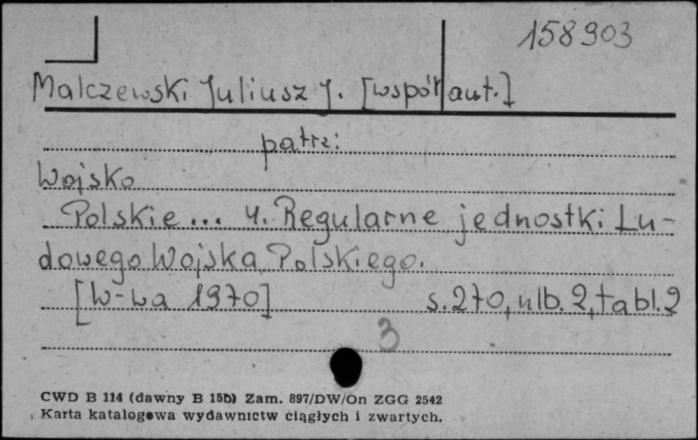 158903
Malczewski Juliusz J. [współaut.]
patrz:
Wojsko
Polskie... 4. Regularne jednostki Lu-
dowego Wojska Polskiego.
[W-wa 1970] s.270, nlb.2, tabl.2
3
CWD B 114 (dawny B 15b) Zam. 897/DW/On ZGG 2542
Karta katalogowa wydawnictw ciągłych i zwartych.